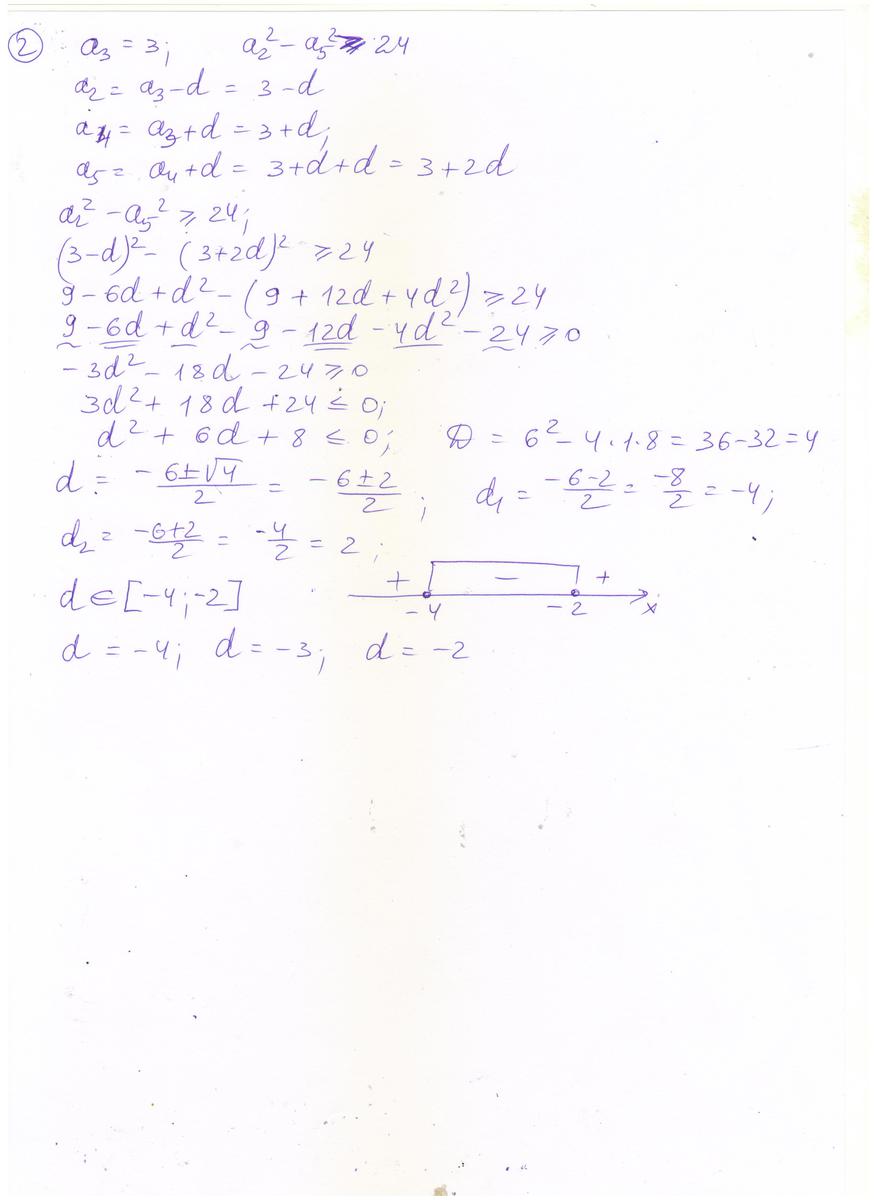 ② a₃ = 3; a₂² - a₅² ⩾ 24
a₂ = a₃ - d = 3 - d
a₄ = a₃ + d = 3 + d;
a₅ = a₄ + d = 3 + d + d = 3 + 2d
a₂² - a₅² ⩾ 24;
(3-d)² - (3+2d)² ⩾ 24
9 - 6d + d² - (9 + 12d + 4d²) ⩾ 24
9 - 6d + d² - 9 - 12d - 4d² - 24 ⩾ 0
-3d² - 18d - 24 ⩾ 0
3d² + 18d + 24 ⩽ 0;
d² + 6d + 8 ⩽ 0; D = 6² - 4·1·8 = 36 - 32 = 4
d = (-6±√4)/2 = (-6±2)/2; d₁ = (-6-2)/2 = -8/2 = -4;
d₂ = (-6+2)/2 = -4/2 = 2;
d ∈ [-4; -2] + − +
-4 -2 x
d = -4; d = -3; d = -2